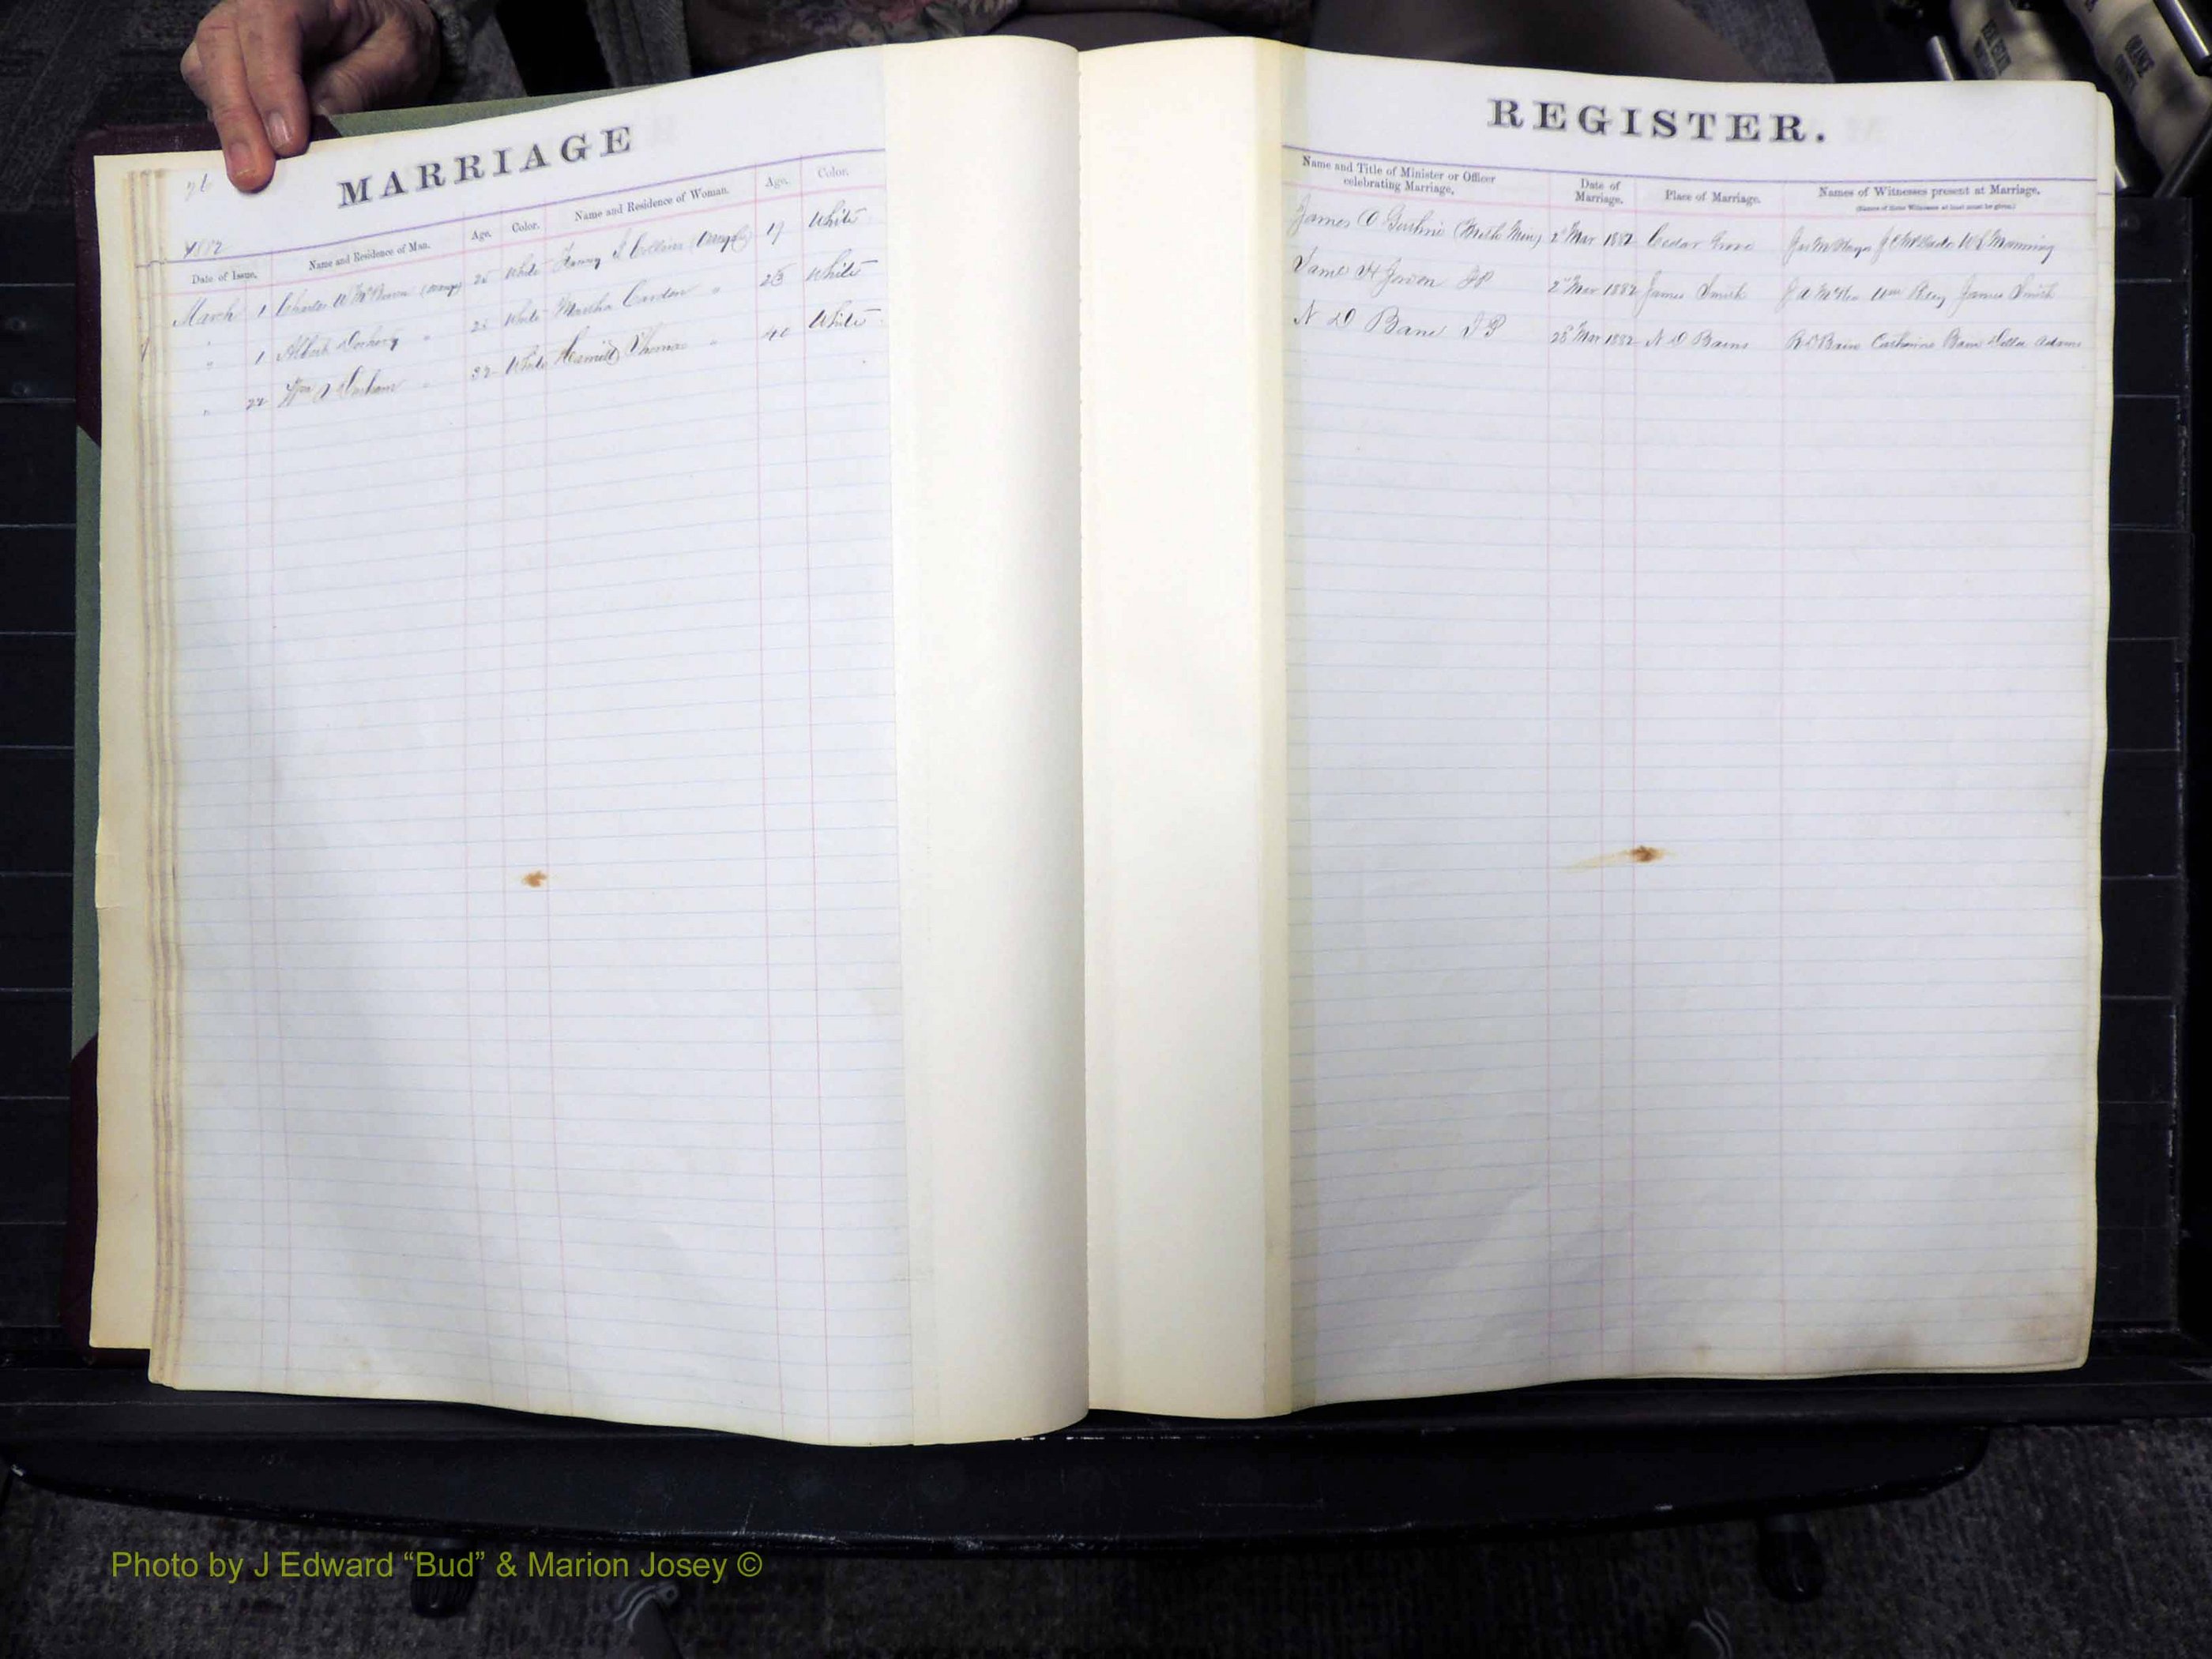 MARRIAGE
1882
Date of Issue. Name and Residence of Man. Age. Color. Name and Residence of Woman. Age. Color.
March 1 Charles W White Fanny J Collins (Orange Co) 19 White
" 1 Albert Dockery " 25 White Martha Carden " 25 White
" 22 Wm J Durham " 32 White Thomas " 40 White
REGISTER.
Name and Title of Minister or Officer celebrating Marriage. Date of Marriage. Place of Marriage. Names of Witnesses present at Marriage.
(Names of three Witnesses at least must be given.)
James O (Meth Min) 2d Mar 1882 Cedar Grove W L Manning
Saml H Jordon JP 2d Mar 1882 James Smith Wm Riley James Smith
N D Bane JP 23d Mar 1882 N D Bains Catharine Bain Della Adams
ORANGE
Photo by J Edward “Bud” & Marion Josey ©